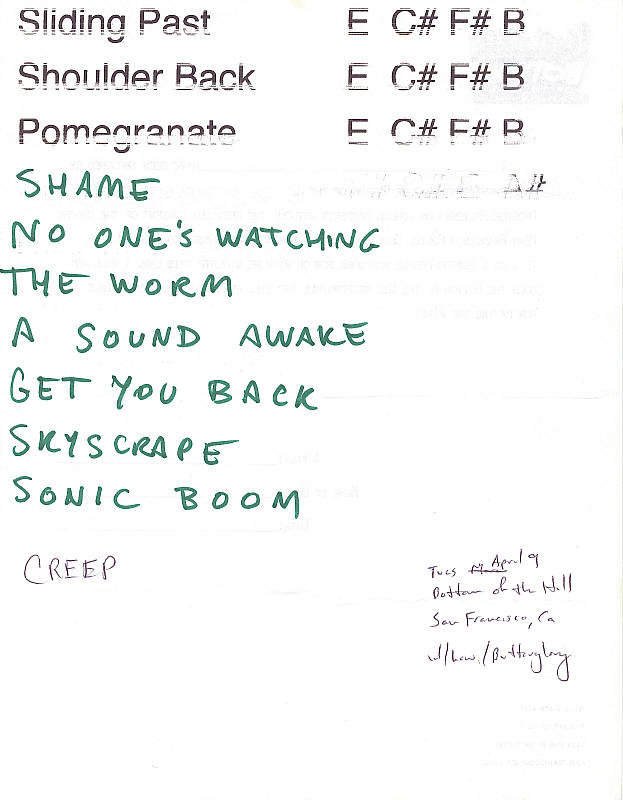 Sliding Past E C# F# B
Shoulder Back E C# F# B
Pomegranate E C# F# B
SHAME
NO ONE'S WATCHING
THE WORM
A SOUND AWAKE
GET YOU BACK
SKYSCRAPE
SONIC BOOM
CREEP
Tues April 9
Bottom of the Hill
San Francisco, Ca